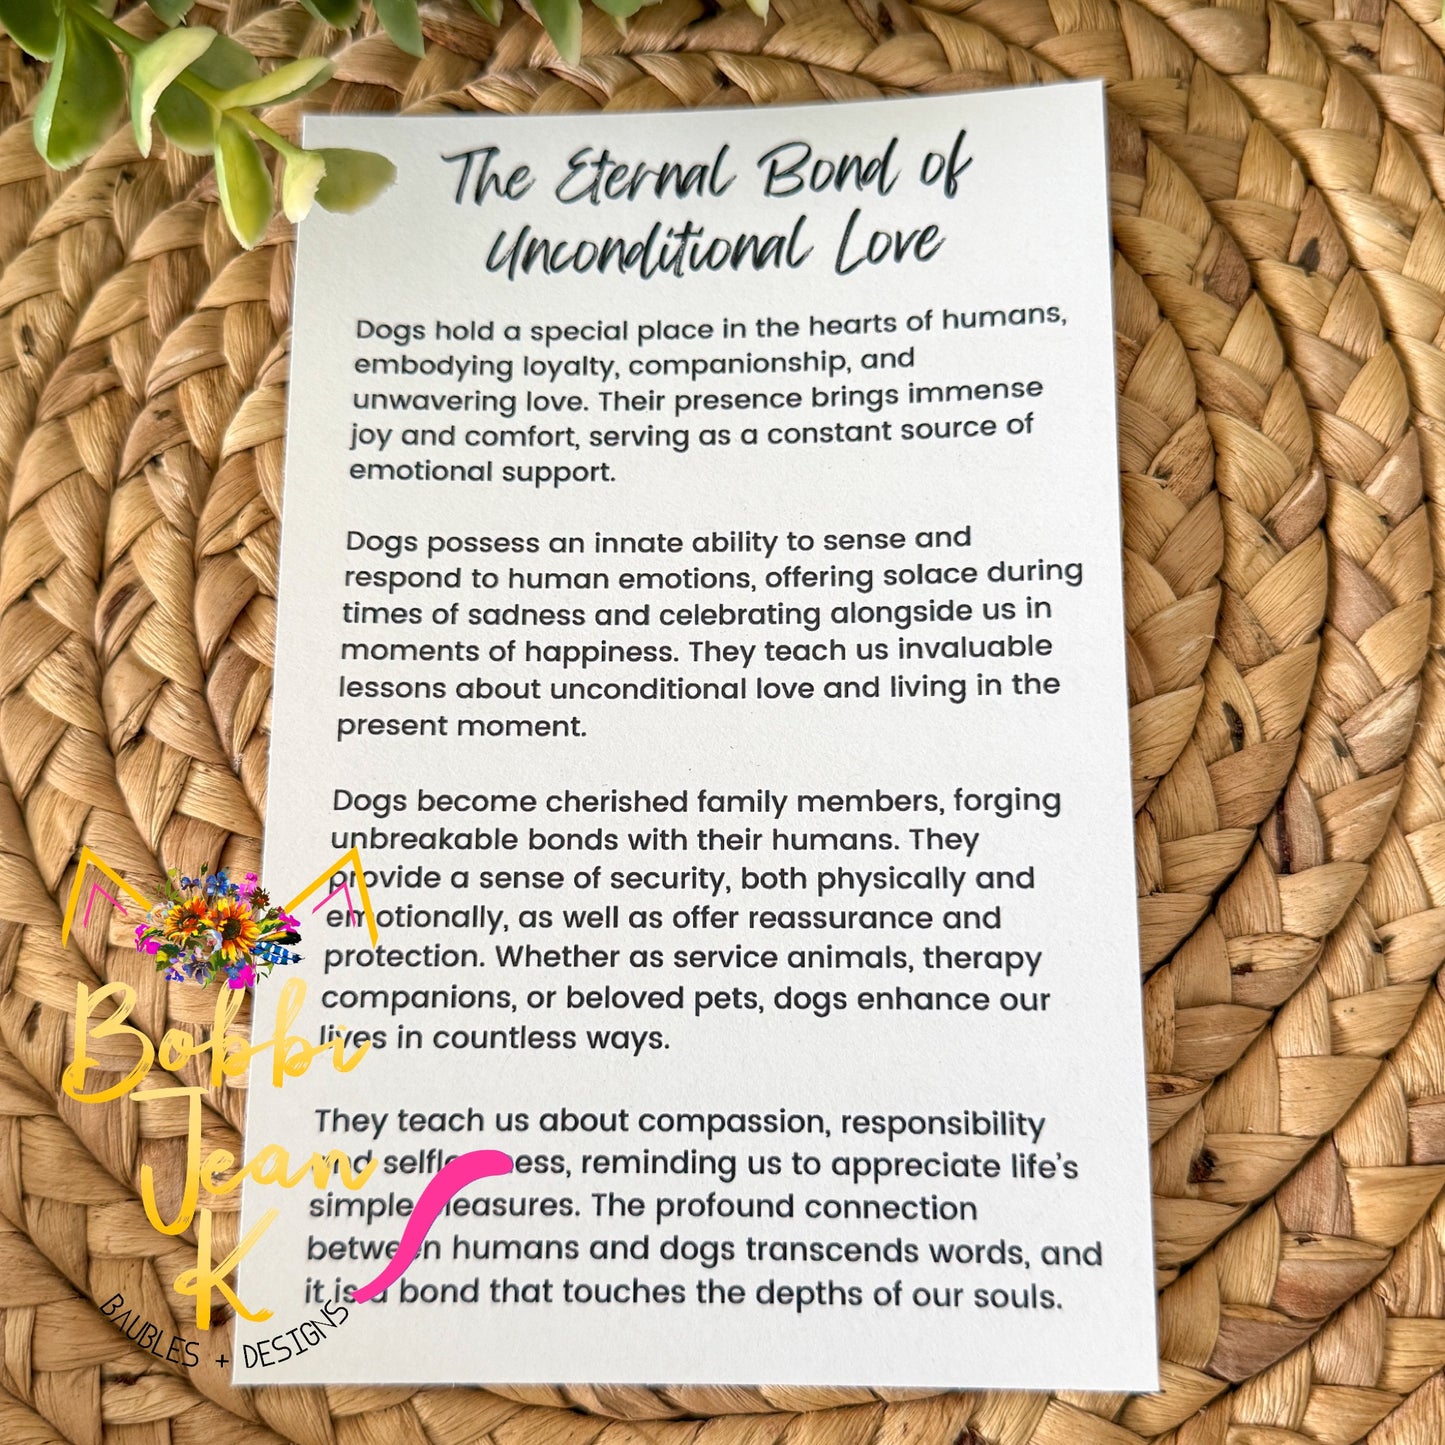 The Eternal Bond of
Unconditional Love
Dogs hold a special place in the hearts of humans,
embodying loyalty, companionship, and
unwavering love. Their presence brings immense
joy and comfort, serving as a constant source of
emotional support.
Dogs possess an innate ability to sense and
respond to human emotions, offering solace during
times of sadness and celebrating alongside us in
moments of happiness. They teach us invaluable
lessons about unconditional love and living in the
present moment.
Dogs become cherished family members, forging
unbreakable bonds with their humans. They
provide a sense of security, both physically and
emotionally, as well as offer reassurance and
protection. Whether as service animals, therapy
companions, or beloved pets, dogs enhance our
lives in countless ways.
They teach us about compassion, responsibility
and selflessness, reminding us to appreciate life's
simple pleasures. The profound connection
between humans and dogs transcends words, and
it is a bond that touches the depths of our souls.
Bobbi
Jean
K
BAUBLES + DESIGNS